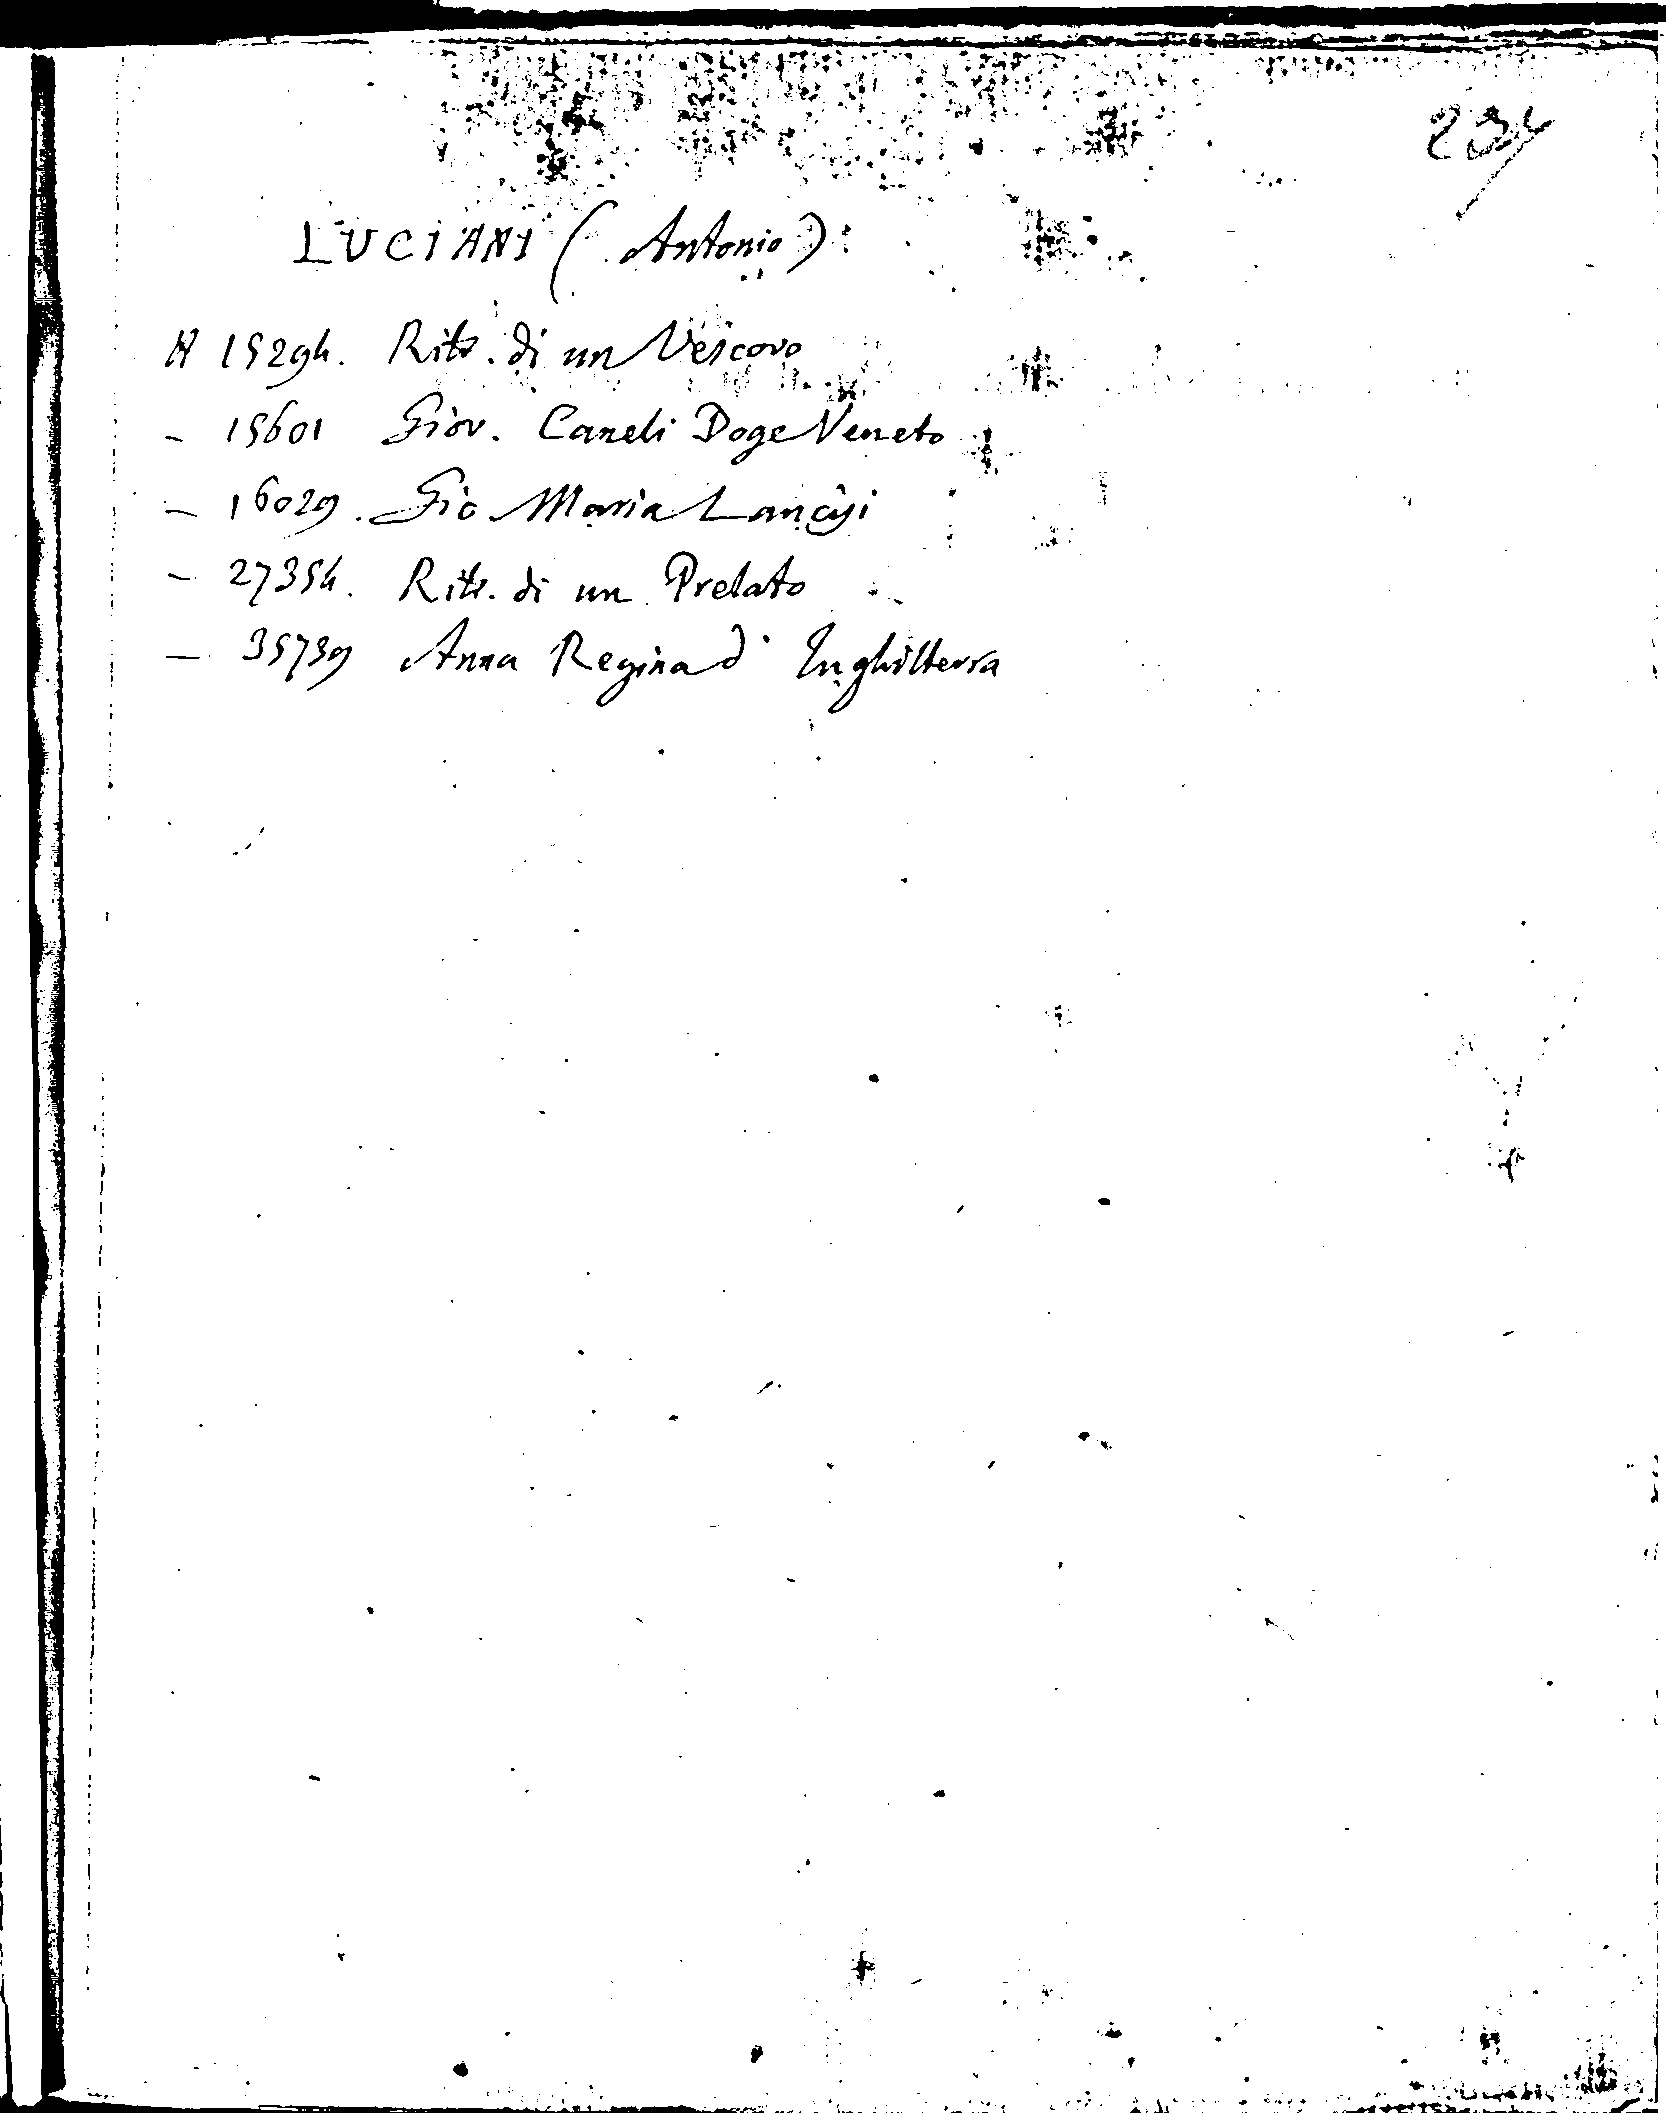 234
LUCIANI (Antonio):
N 15294. Ritr. di un Vescovo
- 15601 Giov. Caneli Doge Veneto
- 16029. Gio Maria Lancisi
- 27354. Ritr. di un Prelato
- 35739 Anna Regina d'Inghilterra